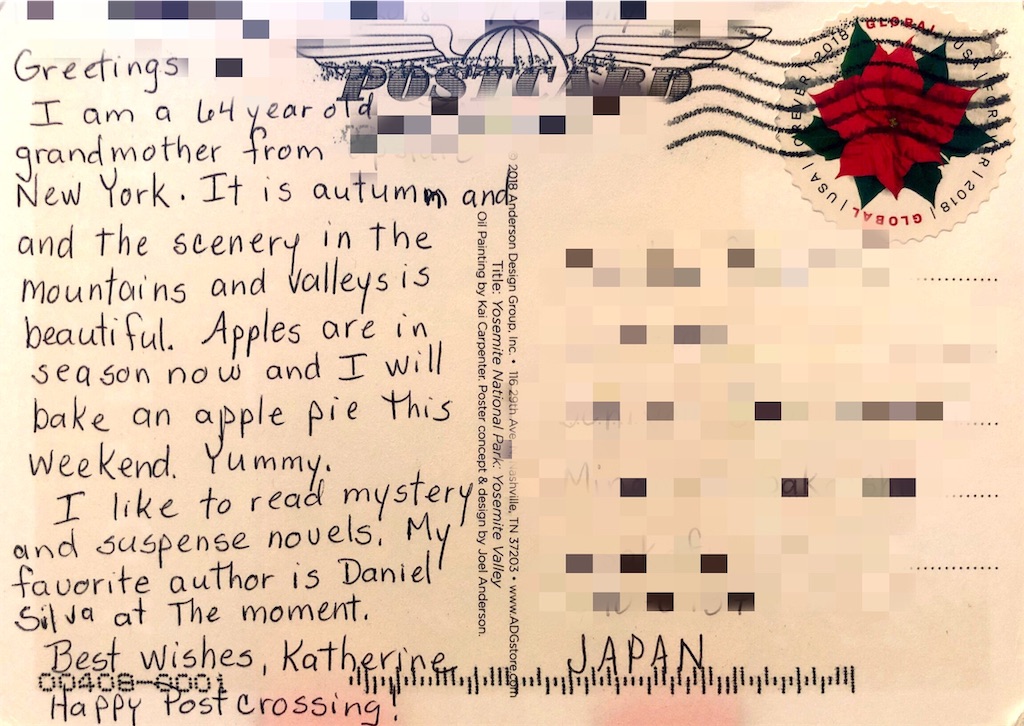 POSTCARD
GLOBAL | USA | FOREVER | 2018 | GLOBAL | USA | FOREVER | 2018 |
Greetings
I am a 64 year old
grandmother from
New York. It is autumn and
and the scenery in the
mountains and valleys is
beautiful. Apples are in
season now and I will
bake an apple pie this
weekend. Yummy.
I like to read mystery
and suspense novels. My
favorite author is Daniel
Silva at The moment.
Best Wishes, Katherine
00408-S001
Happy PostCrossing!
© 2018 Anderson Design Group, Inc. • 116 29th Ave Nashville, TN 37203 • www.ADGstore.com
Title: Yosemite National Park: Yosemite Valley
Oil Painting by Kai Carpenter. Poster concept & design by Joel Anderson.
JAPAN